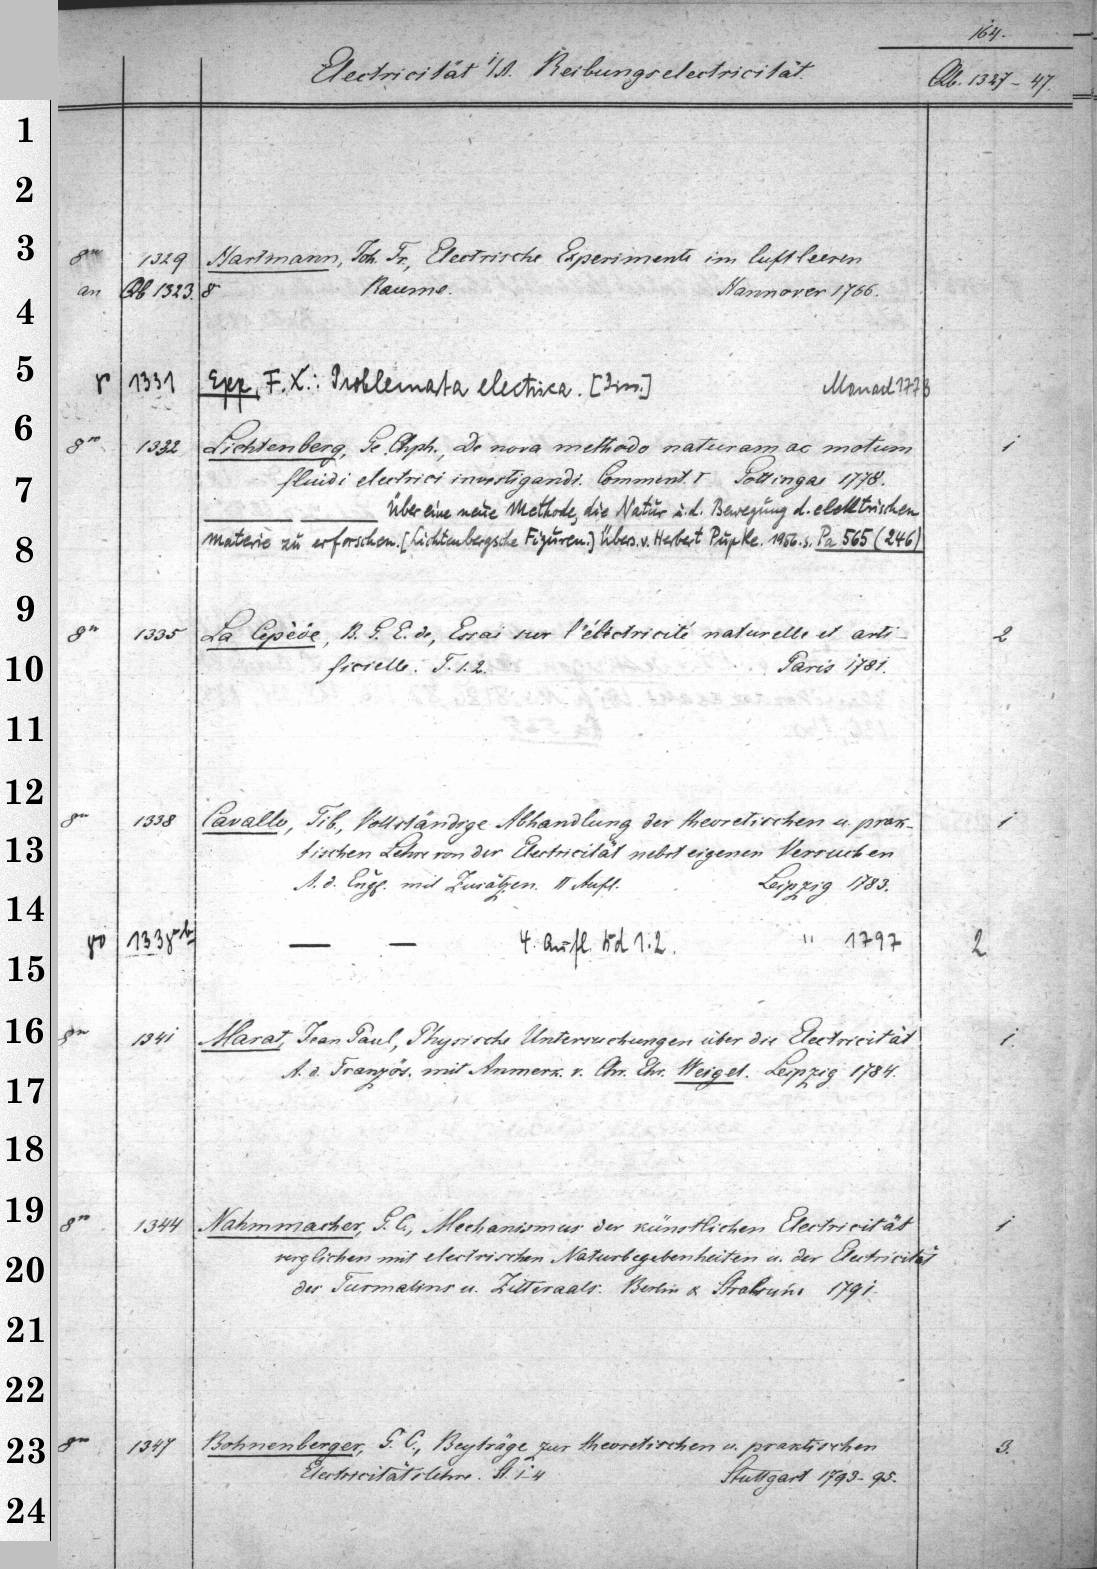 164.
Electricität i/A. Reibungselectricität.
Qb. 1327-47.
1
2
3
8vo 1329 Hartmann, Joh. Fr., Electrische Experimente im luftleeren
an Qb 1323. 8 Raume. Hannover 1766.
4
5
1331 Epp, F. X.: Problemata electrica. Monach 1773
6
8vo 1332 Lichtenberg, Ge. Chph., De nova methodo naturam ac motum 1
7
fluidi electrici investigandi. Comment. I Gottingae 1778.
Über eine neue Methode, die Natur u. d. Bewegung d. elektrischen
8
Materie zu erforschen. [Lichtenbergsche Figuren.] Übers. v. Herbert Pupke. 1956. s. Pa 565 (246)
9
8vo 1335 La Cepède, B. G. E. de, Essai sur l'éléctricité naturelle et arti- 2
10
ficielle. T. 1. 2. Paris 1781.
11
12
8vo 1338 Cavallo, Tib., Vollständige Abhandlung der theoretischen u. prak- 1
13
tischen Lehre von der Electricität nebst eigenen Versuchen
A. d. Engl. mit Zusätzen. II Aufl. Leipzig 1783.
14
8o 1338b — — 4. Aufl. Bd 1.2. " 1797 2
15
16
8vo 1341 Marat, Jean Paul, Physische Untersuchungen über die Electricität 1.
A. d. Französ. mit Anmerk. v. Chr. Ehr. Weigel. Leipzig 1784.
17
18
19
8vo 1344 Nahmmacher, G. C., Mechanismus der künstlichen Electricität 1
20
verglichen mit electrischen Naturbegebenheiten u. der Electricität
des Turmalins u. Zitteraals. Berlin & Stralsund 1791.
21
22
23
8vo 1347 Bohnenberger, G. C., Beyträge zur theoretischen u. praktischen 3.
Electricitätslehre. St. 1-4 Stuttgart 1793-95.
24